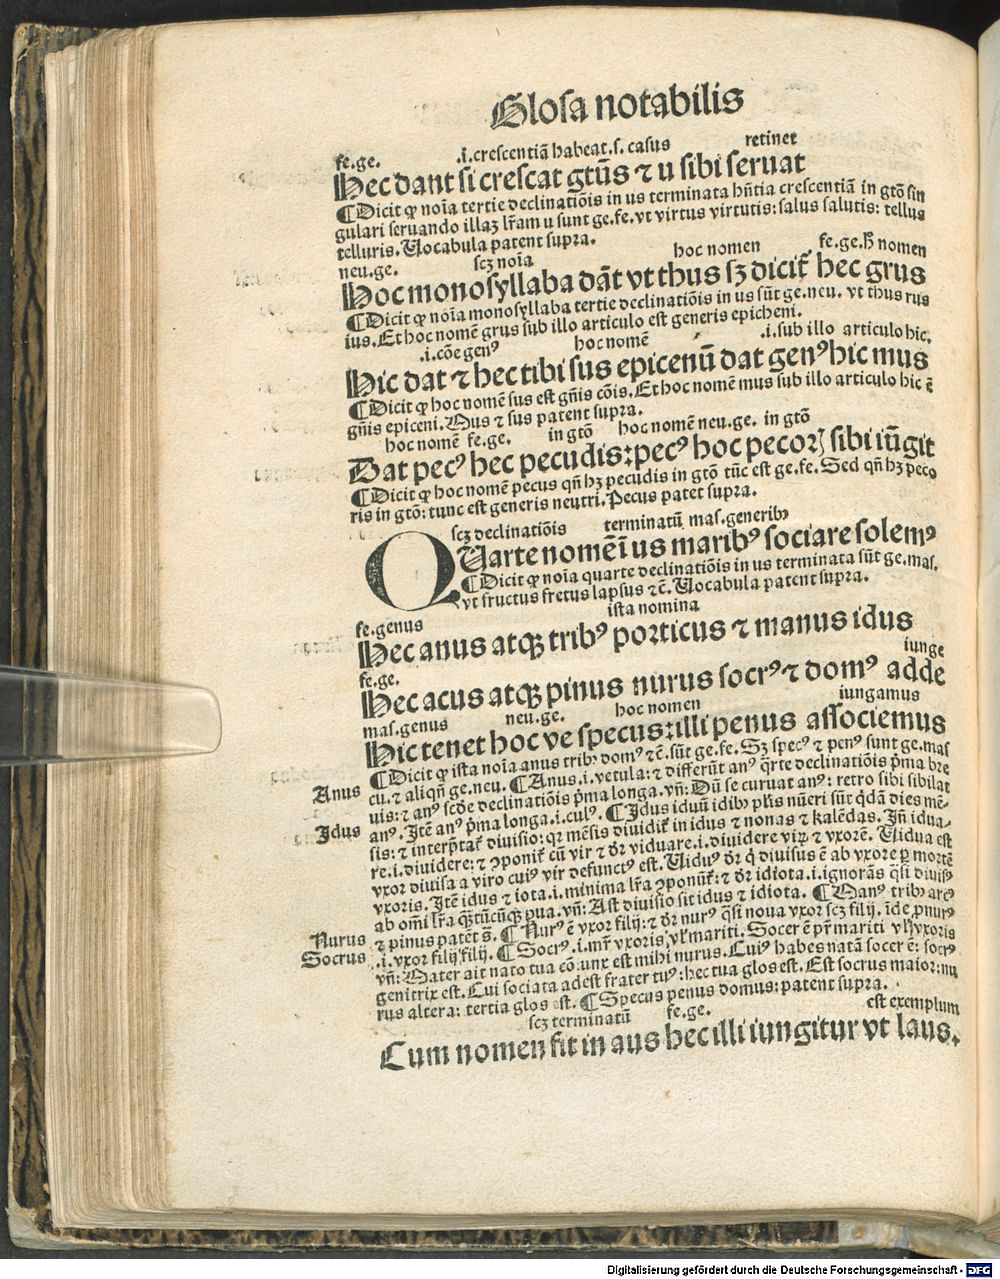 Glosa notabilis
fe.ge. .i.crescentiã habeat.s. casus retinet
Hec dant si crescat gtũs ⁊ u sibi seruat
¶Dicit ꝙ noĩa tertie declinatiõis in us terminata hñtia crescentiã in gtõ sin
gulari seruando illaȝ lr̃am u sunt ge.fe. vt virtus virtutis: salus salutis: tellus
telluris. Uocabula patent supra.
neu.ge. scȝ noĩa hoc nomen fe.ge. h̃ nomen
Hoc monosyllaba dãt vt thus sȝ dicit᷑ hec grus
¶Dicit ꝙ noĩa monosyllaba tertie declinatiõis in us sũt ge.neu. vt thus rus
ius. Et hoc nomẽ grus sub illo articulo est generis epicheni.
.i.cõe genꝰ hoc nomẽ .i.sub illo articulo hic.
Hic dat ⁊ hec tibi sus epicenũ dat genꝰ hic mus
¶Dicit ꝙ hoc nomẽ sus est gñis cõis. Et hoc nomẽ mus sub illo articulo hic ẽ
gñis epiceni. Mus ⁊ sus patent supra.
hoc nomẽ fe.ge. in gtõ hoc nomẽ neu.ge. in gtõ
Dat pecꝰ hec pecudis: pecꝰ hoc pecorꝭ sibi iũgit
¶Dicit ꝙ hoc nomẽ pecus qñ hȝ pecudis in gtõ tũc est ge.fe. Sed qñ hȝ peco
ris in gtõ: tunc est generis neutri. Pecus patet supra.
scȝ declinatiõis terminatũ mas.generibꝰ
QUarte nomẽ ĩ us maribꝰ sociare solemꝰ
¶Dicit ꝙ noĩa quarte declinatiõis in us terminata sũt ge.mas.
vt fructus fretus lapsus ⁊c̃. Uocabula patent supra.
fe.genus ista nomina
Hec anus atqȝ tribꝰ porticus ⁊ manus idus
fe.ge. iunge
Hec acus atqȝ pinus nurus socrꝰ ⁊ domꝰ adde
mas.genus neu.ge. hoc nomen iungamus
Hic tenet hoc ve specus: illi penus associemus
¶Dicit ꝙ ista noĩa anus tribꝰ domꝰ ⁊c̃. sũt ge.fe. Sȝ specꝰ ⁊ penꝰ sunt ge.mas
Anus cu. ⁊ aliqñ ge.neu. ¶Anus.i.vetula: ⁊ differũt anꝰ q̃rte declinatiõis p̃ma bre
uis: ⁊ anꝰ scd̃e declinatiõis p̃ma longa. vñ: Dũ se curuat anꝰ: retro sibi sibilat
Idus anꝰ. Itẽ anꝰ p̃ma longa.i.culꝰ. ¶Idus iduũ idibꝰ pl̃is nũeri sũt q̃dã dies mẽ-
sis: ⁊ interp̃tat᷑ diuisio: qꝛ mẽsis diuidit᷑ in idus ⁊ nonas ⁊ kalẽdas. Iñ idua-
re.i.diuidere: ⁊ ꝯponit᷑ cũ vir ⁊ dr̃ viduare.i.diuidere virꝝ ⁊ vxorẽ. Uidua est
vxor diuisa a viro cuiꝰ vir defunctꝰ est. Uiduꝰ dr̃ q̃ diuisus ẽ ab vxore ꝑ mortẽ
vxoris. Itẽ idus ⁊ iota.i.minima lr̃a ꝯponũt᷑: ⁊ dr̃ idiota.i.ignorãs q̃si diuisꝰ
ab om̃i lr̃a q̃ꝫtũcũqȝ ꝑua. vñ: Ast diuisio sit idus ⁊ idiota. ¶Manꝰ tribꝰ arcꝰ
Nurus ⁊ pinus patet s̃. ¶Nurꝰ ẽ vxor filij: ⁊ dr̃ nurꝰ q̃si noua vxor scȝ filij.
Socrus .i.vxor filij filij. ¶Socrꝰ.i.mr̃ vxoris vl̃ mariti. Socer ẽ pr̃ mariti vl̃ vxoris
vñ: Mater ait nato tua cõiunx est mihi nurus. Cuiꝰ habes natã socer ẽ: socrꝰ
genitrix est. Cui sociata adest frater tuꝰ: hec tua glos est. Est socrus maior: nu
rus altera: tertia glos est. ¶Specus penus domus: patent supra.
scȝ terminatũ fe.ge. est exemplum
Cum nomen fit in aus hec illi iungitur vt laus.
Digitalisierung gefördert durch die Deutsche Forschungsgemeinschaft - DFG